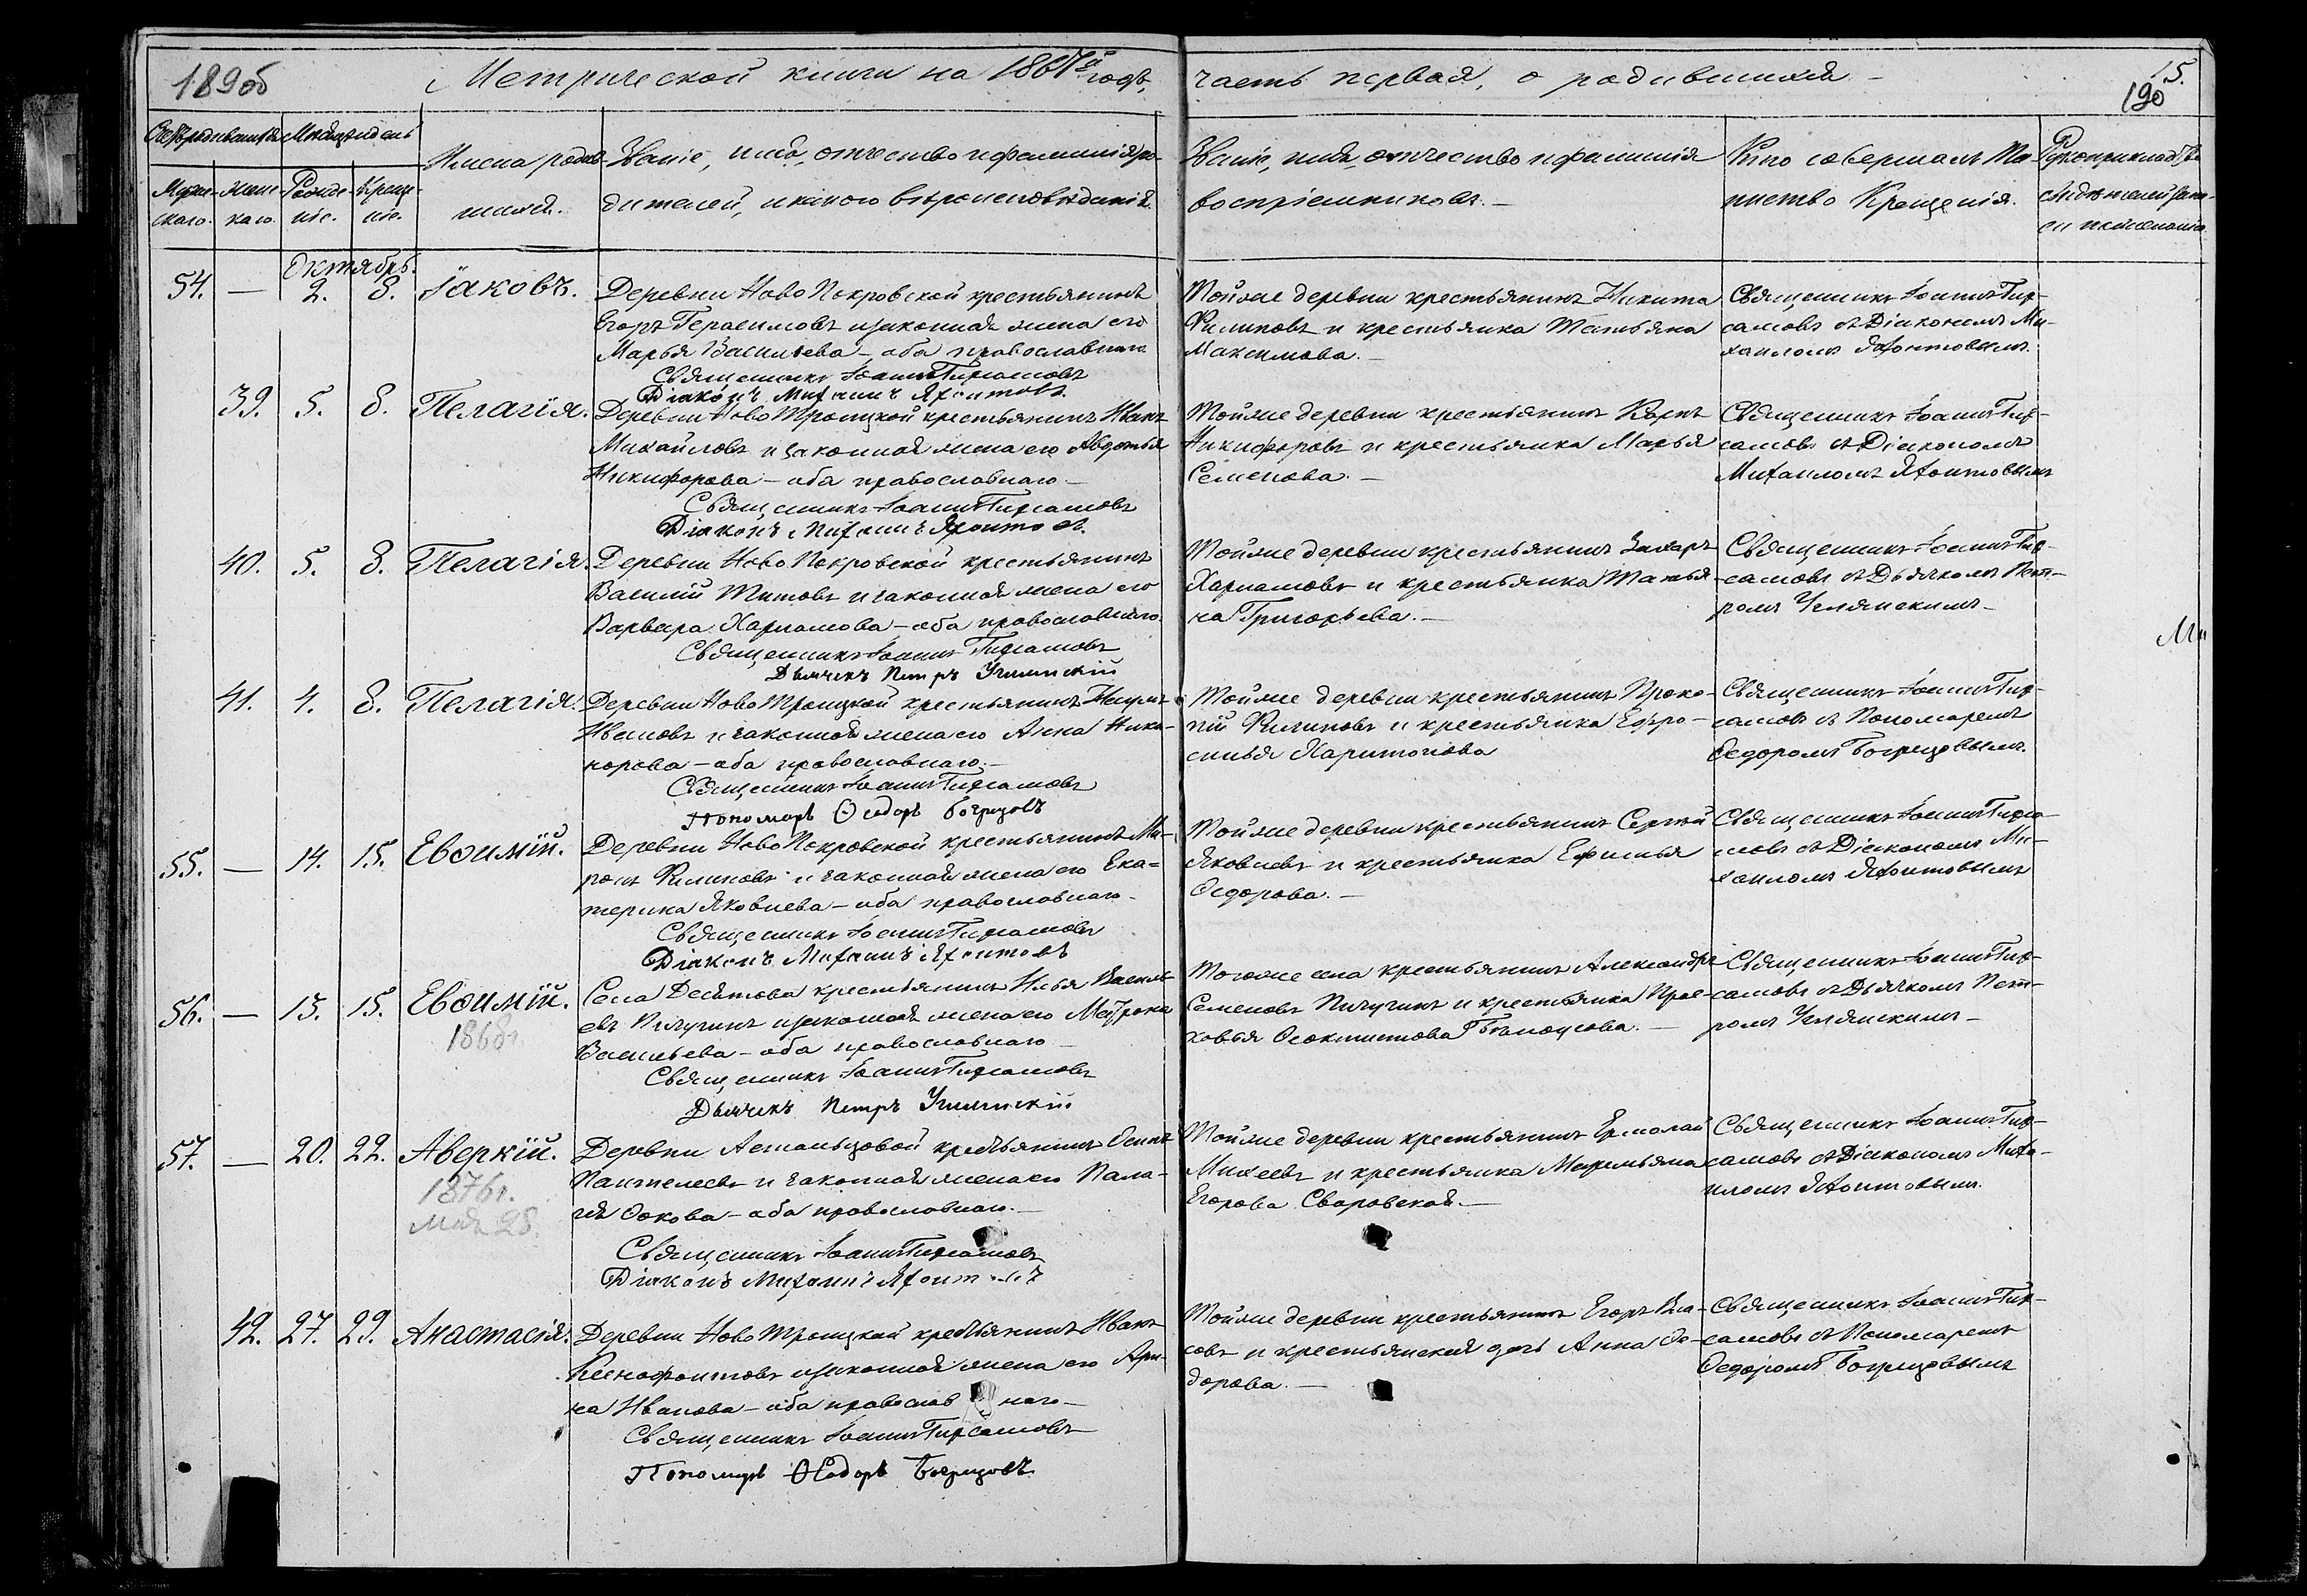 189об
Метрической книги на 1867й годъ,
часть первая, о родившихся
15.
190
Счетъ родившихся
Мѣсяцъ и день
Имена родив-
шихся.
Званіе, имя, отчество и фамилія ро-
дителей, и какого вѣроисповѣданія.
Званіе, имя, отчество и фамилія
воспріемниковъ.
Кто совершалъ Та-
инство Крещенія.
Рукоприкладство
свидѣтелей записи
по желанію
Муже-
скаго.
Жен-
каго.
Рожде-
нія.
Креще-
нія.
Октябрь.
54. — 2. 8. Іаковъ.
Деревни Ново Покровской крестьянинъ
Егоръ Герасимовъ и законная жена его
Марья Васильева — оба православнаго
Священникъ Іоаннъ Тирсамовъ
Діаконъ Михаилъ Яхонтовъ.
Тойже деревни крестьянинъ Никита
Филиповъ и крестьянка Татьяна
Максимова. —
Священникъ Іоаннъ Тир-
самовъ съ Діакономъ Ми-
хаиломъ Яхонтовымъ.
39. 5. 8. Пелагія.
Деревни Ново Троицкой крестьянинъ Иванъ
Михайловъ и законная жена его Авдотья
Никифорова — оба православнаго —
Священникъ Іоаннъ Тирсамовъ
Діаконъ Михаилъ Яхонтовъ.
Тойже деревни крестьянинъ Карпъ
Никифоровъ и крестьянка Марья
Семенова. —
Священникъ Іоаннъ Тир-
самовъ съ Діакономъ
Михаиломъ Яхонтовымъ
40. 5. 8. Пелагія.
Деревни Ново Покровской крестьянинъ
Василій Титовъ и законная жена его
Варвара Харламова — оба православнаго.
Священникъ Іоаннъ Тирсамовъ
Дьячекъ Петръ
Тойже деревни крестьянинъ Захаръ
Харламовъ и крестьянка Татья-
на Григорьева. —
Священникъ Іоаннъ Тир-
самовъ съ Дьячкомъ Пет-
ромъ
41. 4. 8. Пелагія.
Деревни Ново Троицкой крестьянинъ Наумъ
Ивановъ и законная жена его Анна Ника-
норова — оба православнаго. —
Священникъ Іоаннъ Тирсамовъ
Пономарь Ѳеодоръ Богрецовъ
Тойже деревни крестьянинъ Проко-
пій Филиповъ и крестьянка Ефро-
синья Харитонова
Священникъ Іоаннъ Тир-
самовъ съ Пономаремъ
Ѳедоромъ Богрецовымъ.
55. — 14. 15. Евѳимій.
Деревни Ново Покровской крестьянинъ Ми-
ронъ Филиповъ и законная жена его Ека-
терина Яковлева — оба православнаго —
Священникъ Іоаннъ Тирсамовъ
Діаконъ Михаилъ Яхонтовъ
Тойже деревни крестьянинъ Сергѣй
Яковлевъ и крестьянка Ефимья
Ѳедорова. —
Священникъ Іоаннъ Тирса-
мовъ съ Діакономъ Ми-
хаиломъ Яхонтовымъ
56. — 13. 15. Евѳимій.
1868г.
Села Десятова крестьянинъ Илья Василь-
евъ Пичугинъ и законная жена его Матрона
Васильева — оба православнаго —
Священникъ Іоаннъ Тирсамовъ
Дьячекъ Петръ
Тогоже села крестьянинъ Александръ
Семеновъ Пичугинъ и крестьянка Прас-
ковья Ѳеоктистова Бѣлоусова. —
Священникъ Іоаннъ Тир-
самовъ съ Дьячкомъ Пет-
ромъ
57. — 20. 22. Аверкій.
1876г.
Мая 28.
Деревни Астальцовой крестьянинъ Осипъ
Пантелеевъ и законная жена его Пала-
гѣя Фокова — оба православнаго. —
Священникъ Іоаннъ Тирсамовъ
Діаконъ Михаилъ Яхонтовъ
Тойже деревни крестьянинъ Ермолай
Михеевъ и крестьянка Маремьяна
Егорова Сваровская. —
Священникъ Іоаннъ Тир-
самовъ съ Діакономъ Миха-
иломъ Яхонтовымъ.
42. 27. 29. Анастасія.
Деревни Ново Троицкой крестьянинъ Иванъ
Ксенофонтовъ и законная жена его Ари-
на Иванова — оба православнаго —
Священникъ Іоаннъ Тирсамовъ
Пономарь Ѳеодоръ Богрецовъ.
Тойже деревни крестьянинъ Егоръ Вла-
совъ и крестьянская дочь Анна Ѳе-
дорова. —
Священникъ Іоаннъ Тир-
самовъ съ Пономаремъ
Ѳедоромъ Богрецовымъ